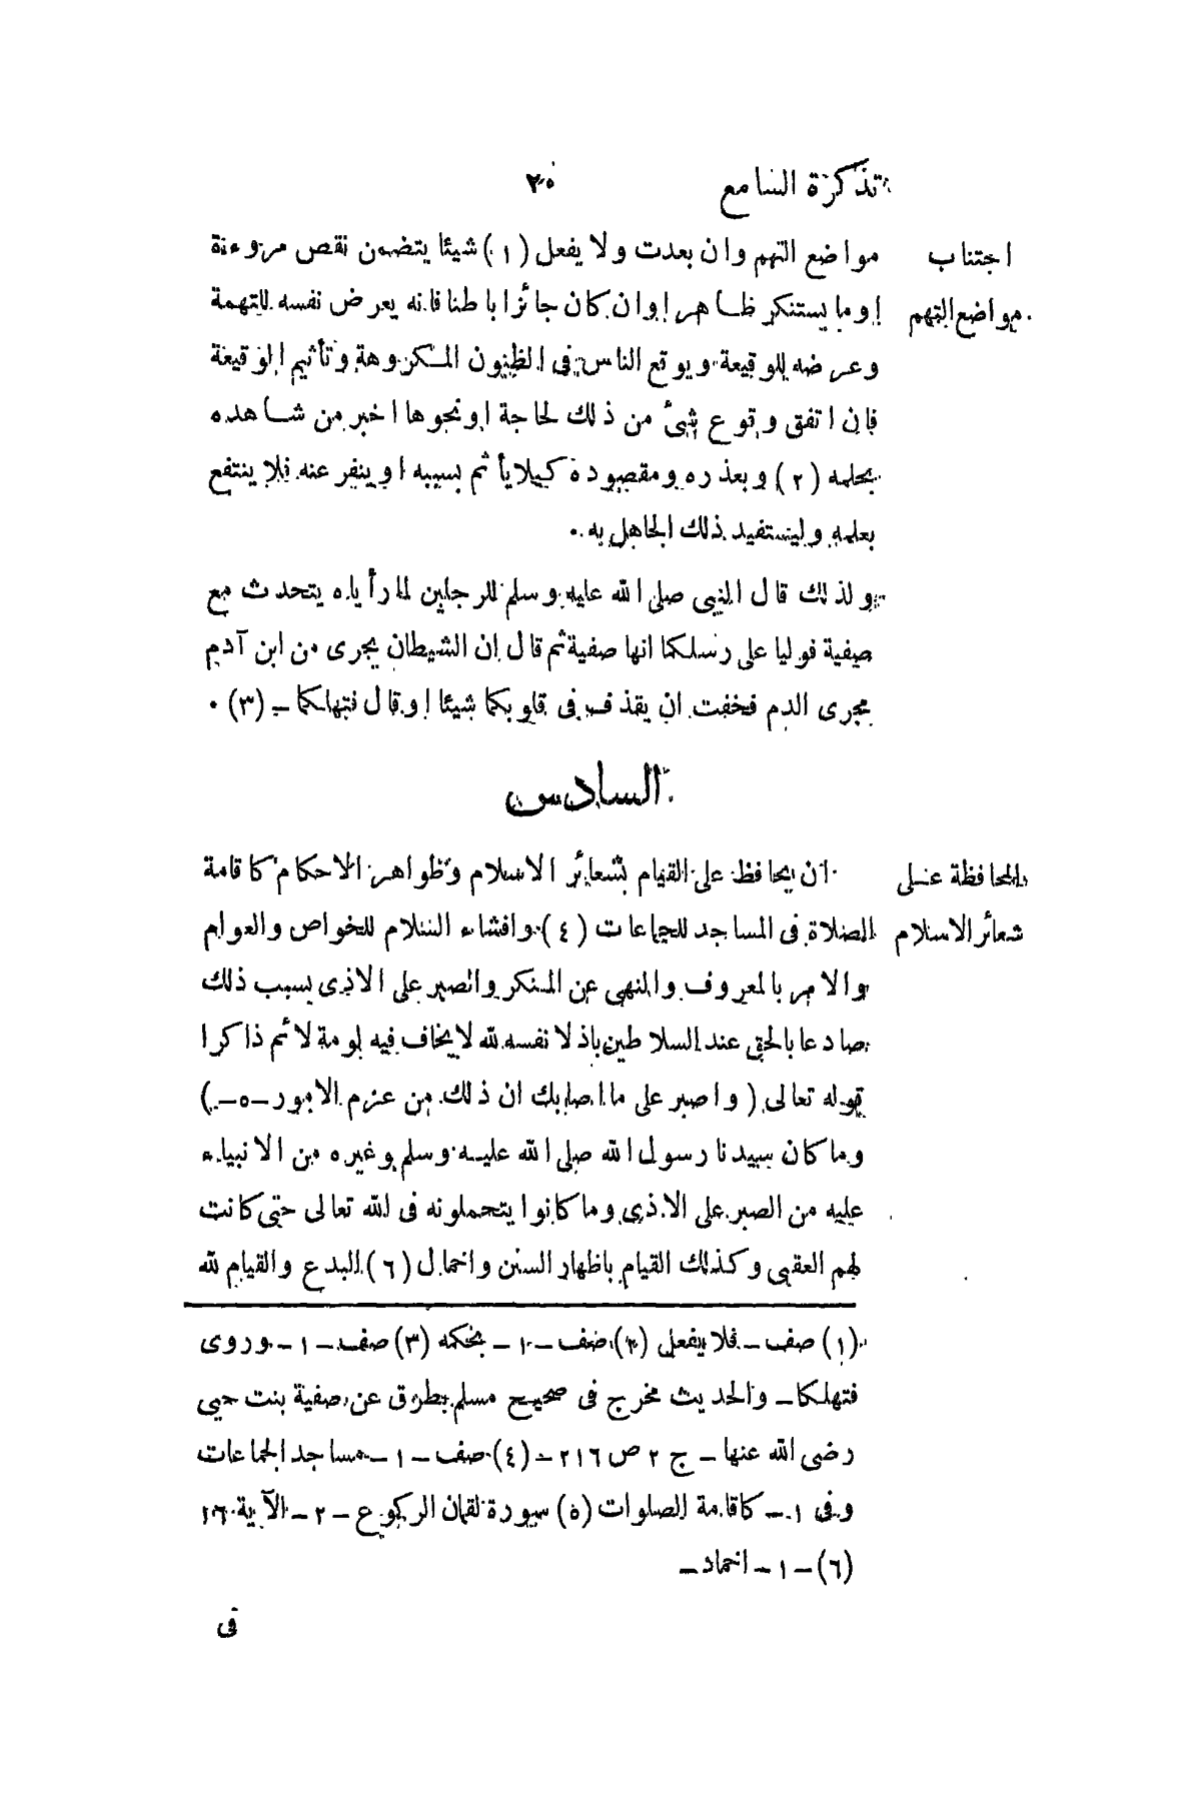 تذكرة السامع ٢٠
اجتناب
مواضع التهم
مواضع التهم وان بعدت ولا يفعل (١) شيئا يتضمن نقص مروءة
او ما يستنكر ظاهرا وان كان جائزا باطنا فانه يعرض نفسه للتهمة
وعرضه للوقيعة ويوقع الناس فى الظنون المكروهة وتأثيم الوقيعة
فان اتفق وقوع شئ من ذلك لحاجة او نحوها اخبر من شاهده
بحكمه (٢) وبعذره ومقصوده كيلا يأثم بسببه او ينفر عنه فلا ينتفع
بعلمه وليستفيد ذلك الجاهل به .
ولذلك قال النبى صلى الله عليه وسلم للرجلين لما رأياه يتحدث مع
صفية فوليا على رسلكما انها صفية ثم قال ان الشيطان يجرى من ابن آدم
مجرى الدم فخفت ان يقذف فى قلوبكما شيئا او قال فتهلكما ـ (٣) .
السادس
المحافظة على
شعائر الاسلام
ان يحافظ على القيام بشعائر الاسلام وظواهر الاحكام كاقامة
الصلاة فى المساجد للجماعات (٤) وافشاء السلام للخواص والعوام
والامر بالمعروف والنهى عن المنكر والصبر على الاذى بسبب ذلك
صادعا بالحق عند السلاطين باذلا نفسه لله لا يخاف فيه لومة لائم ذاكرا
قوله تعالى (واصبر على ما اصابك ان ذلك من عزم الامور ـ ٥ ـ)
وما كان سيدنا رسول الله صلى الله عليه وسلم وغيره من الانبياء
عليه من الصبر على الاذى وما كانوا يتحملونه فى الله تعالى حتى كانت
لهم العقبى وكذلك القيام باظهار السنن واخمال (٦) البدع والقيام لله
(١) صف ـ فلا يفعل (٢) صف ـ ١ ـ بحكمه (٣) صف ـ ١ ـ وروى
فتهلكا ـ والحديث مخرج فى صحيح مسلم بطرق عن صفية بنت حيى
رضى الله عنها ـ ج ٢ ص ٢١٦ ـ (٤) صف ـ ١ ـ مساجد الجماعات
وفى ١ ـ كاقامة الصلوات (٥) سورة لقمان الركوع ـ ٢ ـ الآية ١٦
(٦) ـ ١ ـ اخماد ـ
فى